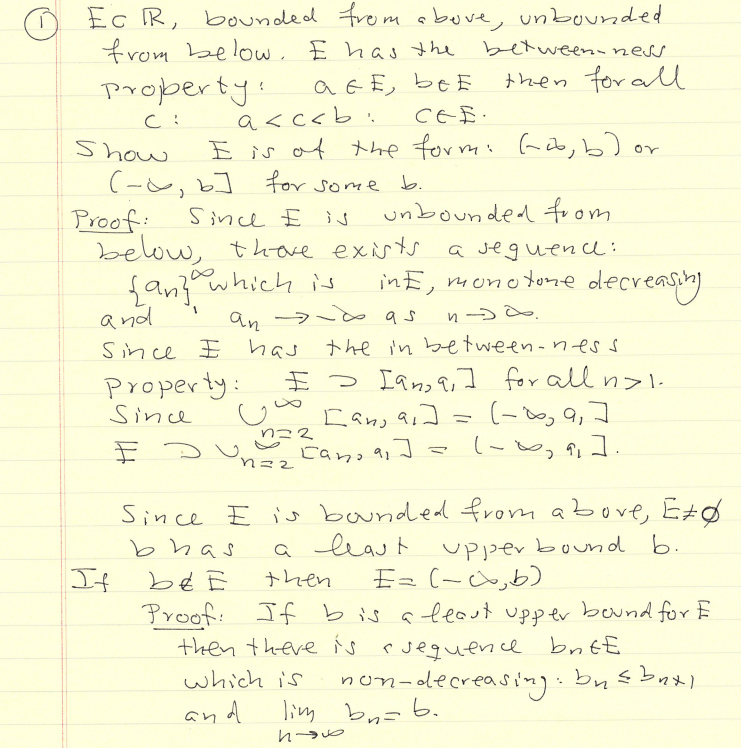 ① E ⊂ ℝ, bounded from above, unbounded
from below. E has the between-ness
property: a ∈ E, b ∈ E then for all
c: a < c < b: c ∈ E.
Show E is of the form: (-∞, b) or
(-∞, b] for some b.
Proof: Since E is unbounded from
below, there exists a sequence:
{aₙ}₁^∞ which is in E, monotone decreasing
and aₙ → -∞ as n → ∞.
Since E has the in between-ness
property: E ⊃ [aₙ, a₁] for all n > 1.
Since ∪_{n=2}^∞ [aₙ, a₁] = (-∞, a₁]
E ⊃ ∪_{n=2}^∞ [aₙ, a₁] = (-∞, a₁].
Since E is bounded from above, E ≠ ∅
b has a least upper bound b.
If b ∉ E then E = (-∞, b)
Proof: If b is a least upper bound for E
then there is a sequence bₙ ∈ E
which is non-decreasing: bₙ ≤ bₙ₊₁
and lim_{n→∞} bₙ = b.